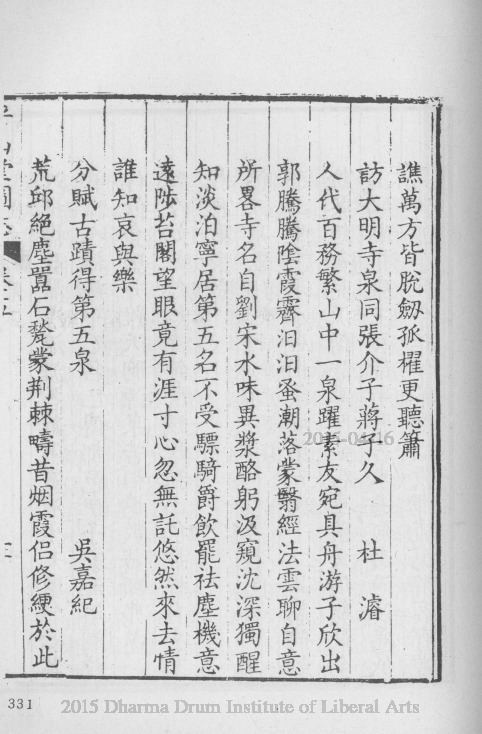 譙萬方皆脫劒孤櫂更聽簫
訪大明寺泉同張介子蔣子久 杜濬
人代百務繁山中一泉躍素友宛具舟游子欣出
郭騰騰陰霞霽汩汩蚤潮落蒙翳經法雲聊自意
所畧寺名自劉宋水味異漿酪躬汲窺沈深獨醒
知淡泊寧居第五名不受驃騎爵飲罷祛塵機意
遠陟苔閣望眼竟有涯寸心忽無託悠然來去情
誰知哀與樂
分賦古蹟得第五泉 吳嘉紀
荒邱絶塵囂石甃蒙荆棘疇昔烟霞侶修綆於此
平山堂圖志 卷五
2015-04-16
331
2015 Dharma Drum Institute of Liberal Arts